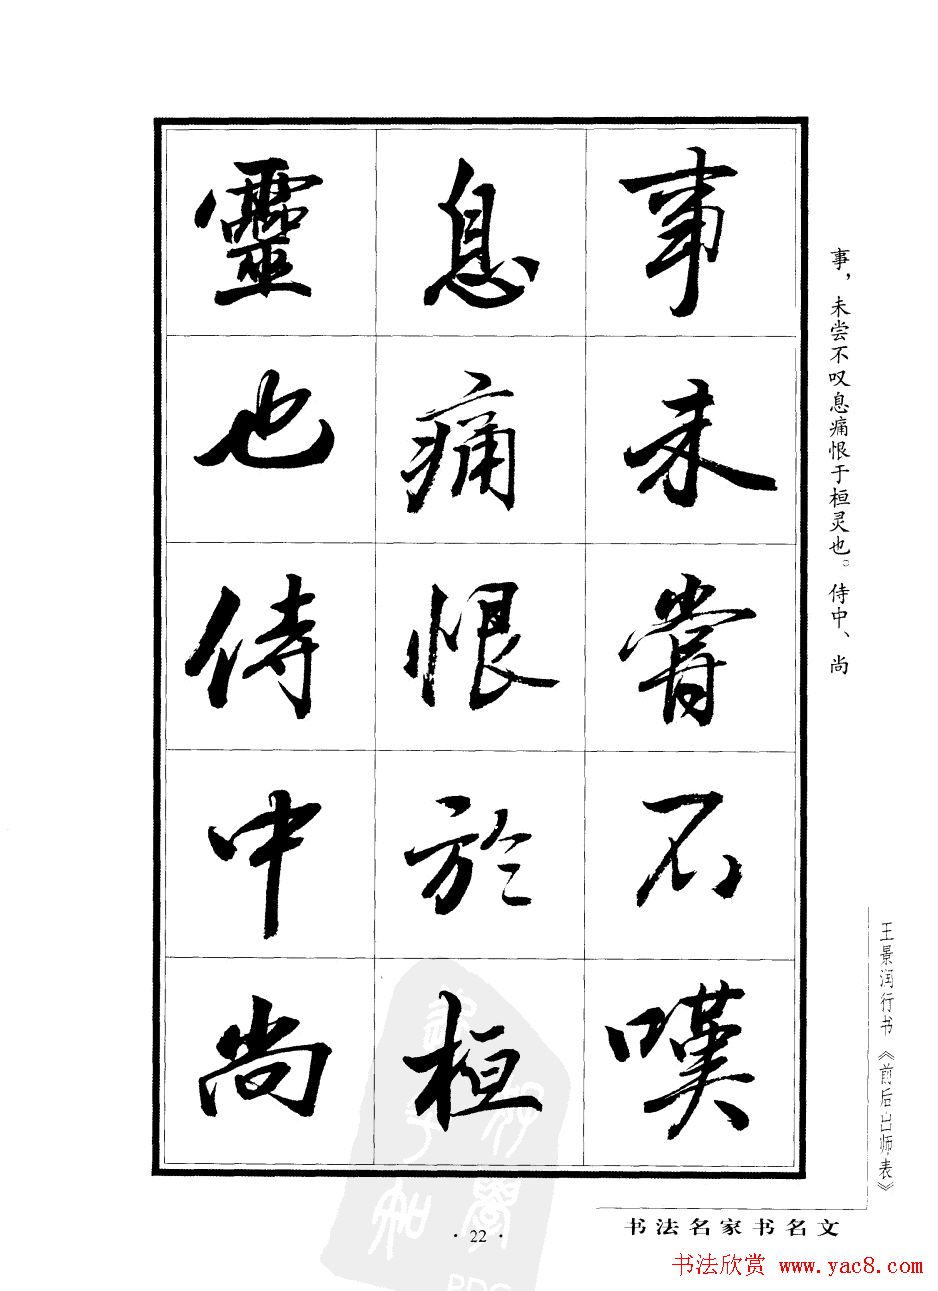 事未嘗不嘆
息痛恨於桓
靈也侍中尚
事，未尝不叹息痛恨于桓灵也。侍中、尚
王景润行书《前后出师表》
书法名家书名文
·22·
书法欣赏 www.yac8.com